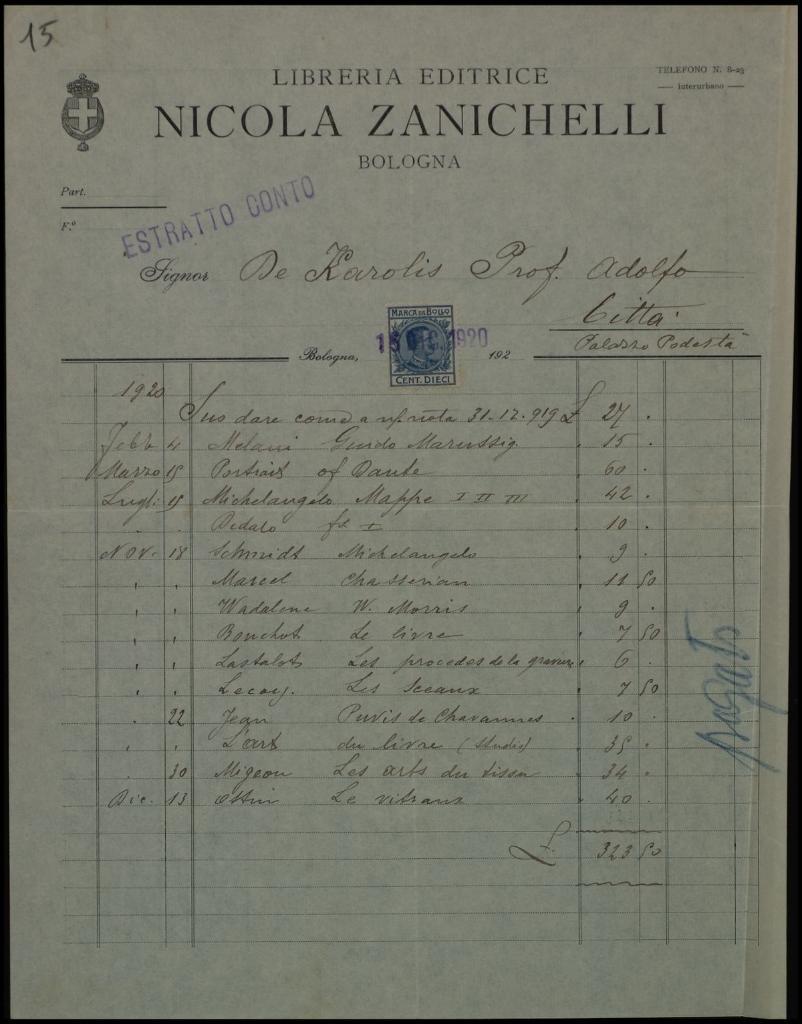 15
LIBRERIA EDITRICE
TELEFONO N. 8-23
interurbano
NICOLA ZANICHELLI
BOLOGNA
Part.
F.º
ESTRATTO CONTO
Signor De Karolis Prof. Adolfo
Città
Palazzo Podestà
MARCA DA BOLLO
CENT. DIECI
Bologna, 15 DIC. 1920 192
1920
Suo dare come a ns/ nota 31-12-919 £ 27 .
Febb 4 Melani Guido Marussig " 15 .
Marzo 15 Portrait of Dante " 60 .
Lugl: 15 Michelangelo Mappe I II III " 42 .
" " Dedalo fs I " 10 .
Nov. 18 Schmidt Michelangelo " 9 .
" " Marcel Chasserian " 11 50
" " Wadalene W. Morris " 9 .
" " Bouchot Le livre " 7 50
" " Lostalot Les procedes de la gravure " 6 .
" " Lecoy. Les Sceaux " 7 50
" 22 Jean Puvis de Chavannes " 10 .
" " L'art du livre (Studio) " 35 .
" 30 Migeon Les arts du tissu " 34 .
Dic. 13 Ottin Le vitraux " 40 .
£ 323 50
pagato